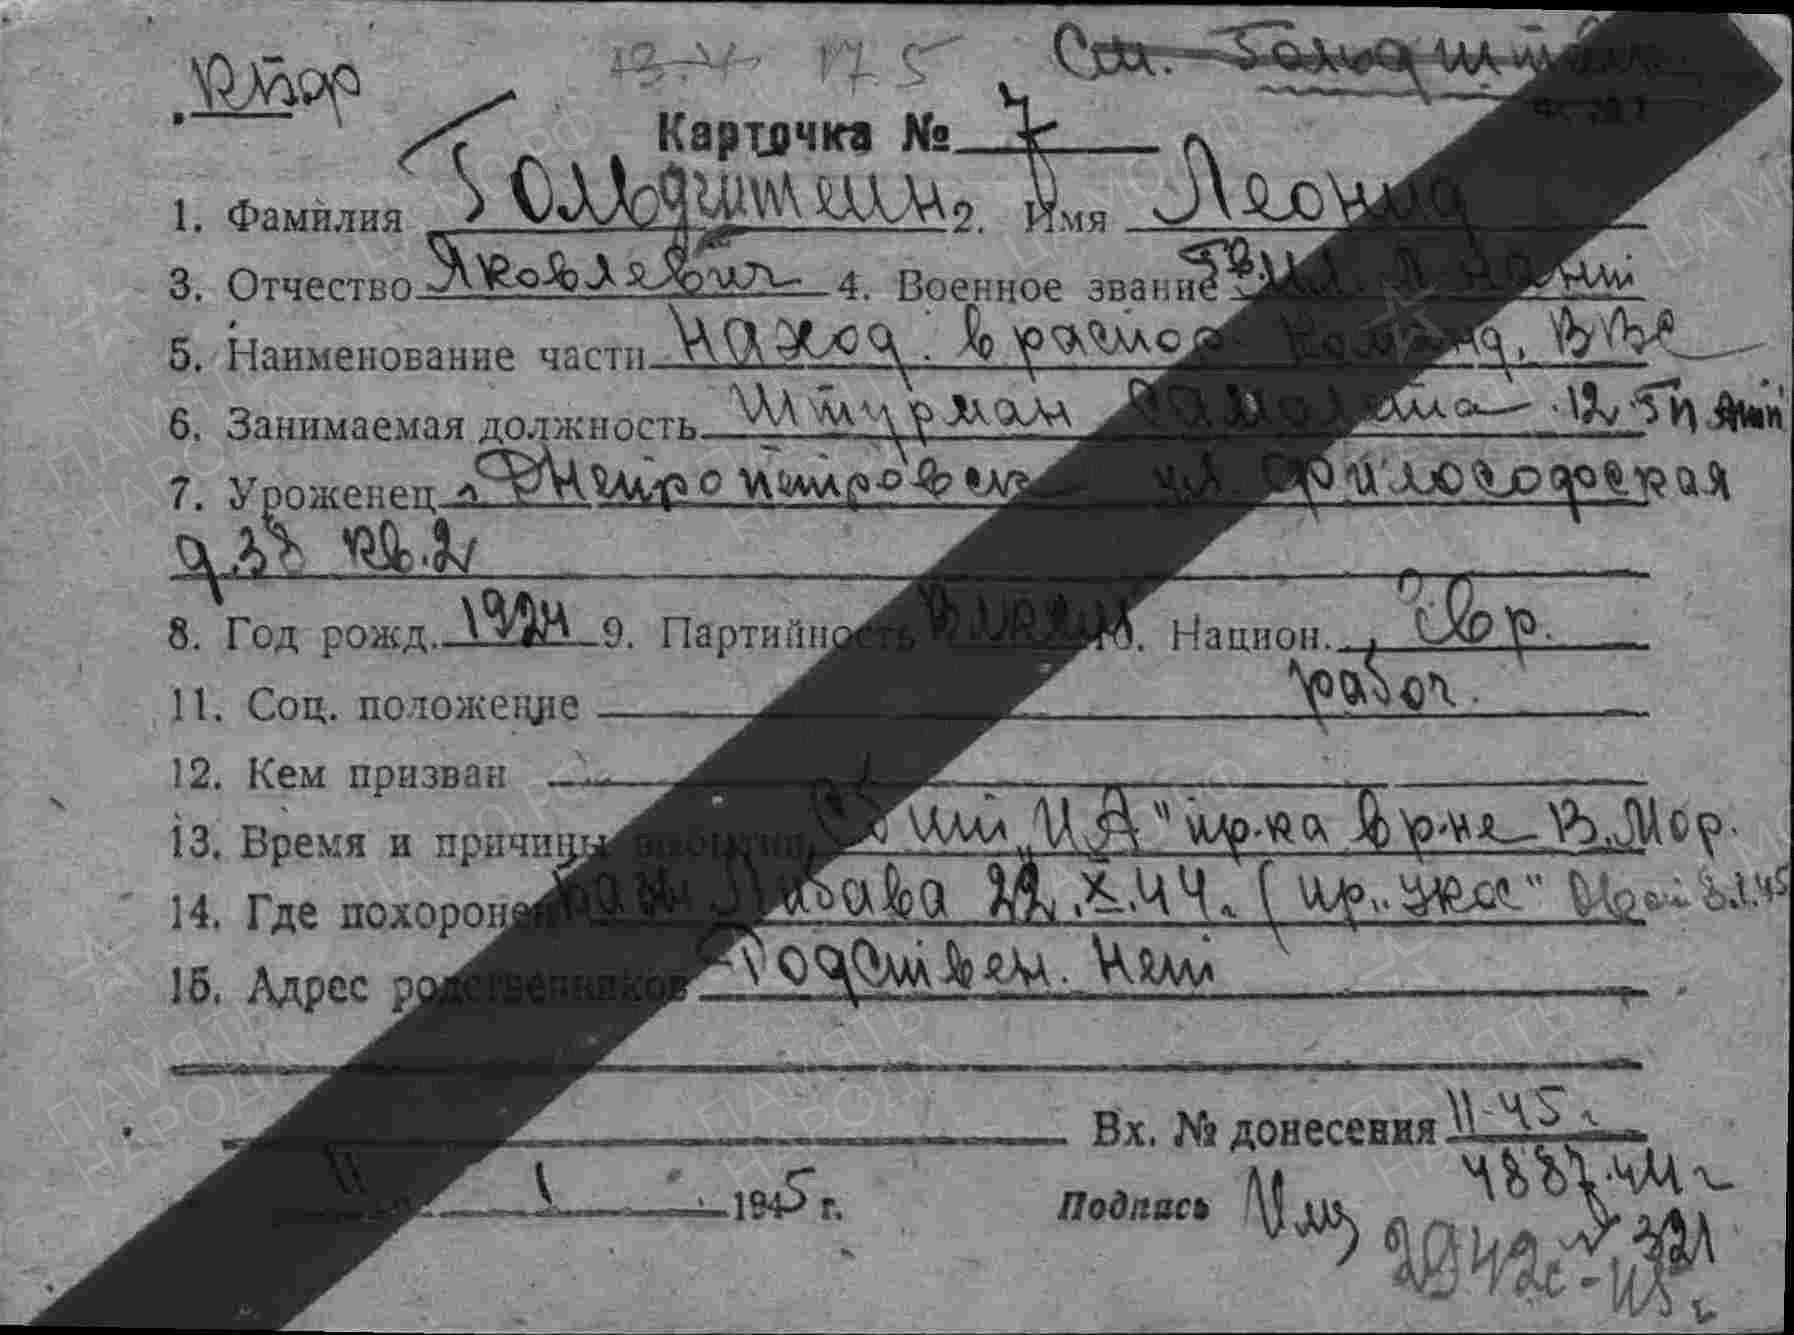 КБФ 13.4 17.5 См. Гольдштейн
Карточка № 7
1. Фамилия Гольдштейн 2. Имя Леонид
3. Отчество Яковлевич 4. Военное звание Гв. мл. л-нант
5. Наименование части наход. в распор. Команд. ВВС
6. Занимаемая должность Штурман самолета 12 Гп
7. Уроженец г. Днепропетровск ул Философская
д.38 кв.2
8. Год рожд. 1924 9. Партийность ВЛКСМ 10. Национ. Евр.
11. Соц. положение рабоч.
12. Кем призван
13. Время и причины выбытия Сбит "ИА" пр-ка в р-не В.Мор.
14. Где похоронен Либава 22.X.44. (пр. 8.1.45
15. Адрес родственников Родствен. нет
Вх. № донесения 11-45 г.
11 1 1945 г. Подпись 4887.44 г
321
2942с-45 г.